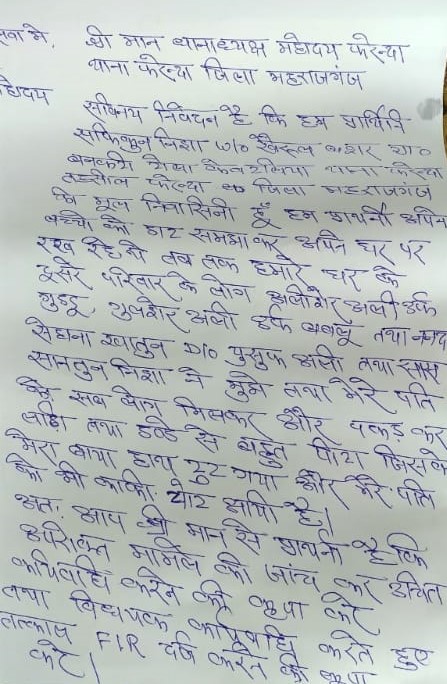 सेवा में, श्री मान थानाध्यक्ष महोदय फरेन्दा
थाना फरेन्दा जिला महराजगंज
महोदय
सविनय निवेदन है कि हम प्रार्थिनि
निशा w/o
थाना फरेन्दा
तहसील फरेन्दा जिला महराजगंज
की मूल निवासिनी हूँ हम अपनी अपने
बच्चो को डाट समझाकर अपने घर पर
रख रहे थे तब तक हमारे घर के
दूसरे परिवार के लोग अलीशेर अली उर्फ
गुड्डू, गुलशेर अली उर्फ बबलू तथा ननद
सेहाना खातुन D/O युसुफ अली तथा सास
निशा ने मुझे तथा मेरे पति
को सब लोग मिलकर और पकड़ कर
लाठी तथा डण्डे से बहुत पीटा जिससे
मेरा बाया हाथ टुट गया और मेरे पति
को भी काफी चोट आयी है।
अतः आप श्री मान से प्रार्थना है कि
उपरोक्त मामले की जांच कर उचित
कार्यवाहि करने की कृपा करे
तथा विधिक कार्यवाहि करते हुए
तत्काल FIR दर्ज करने की कृपा
करे।